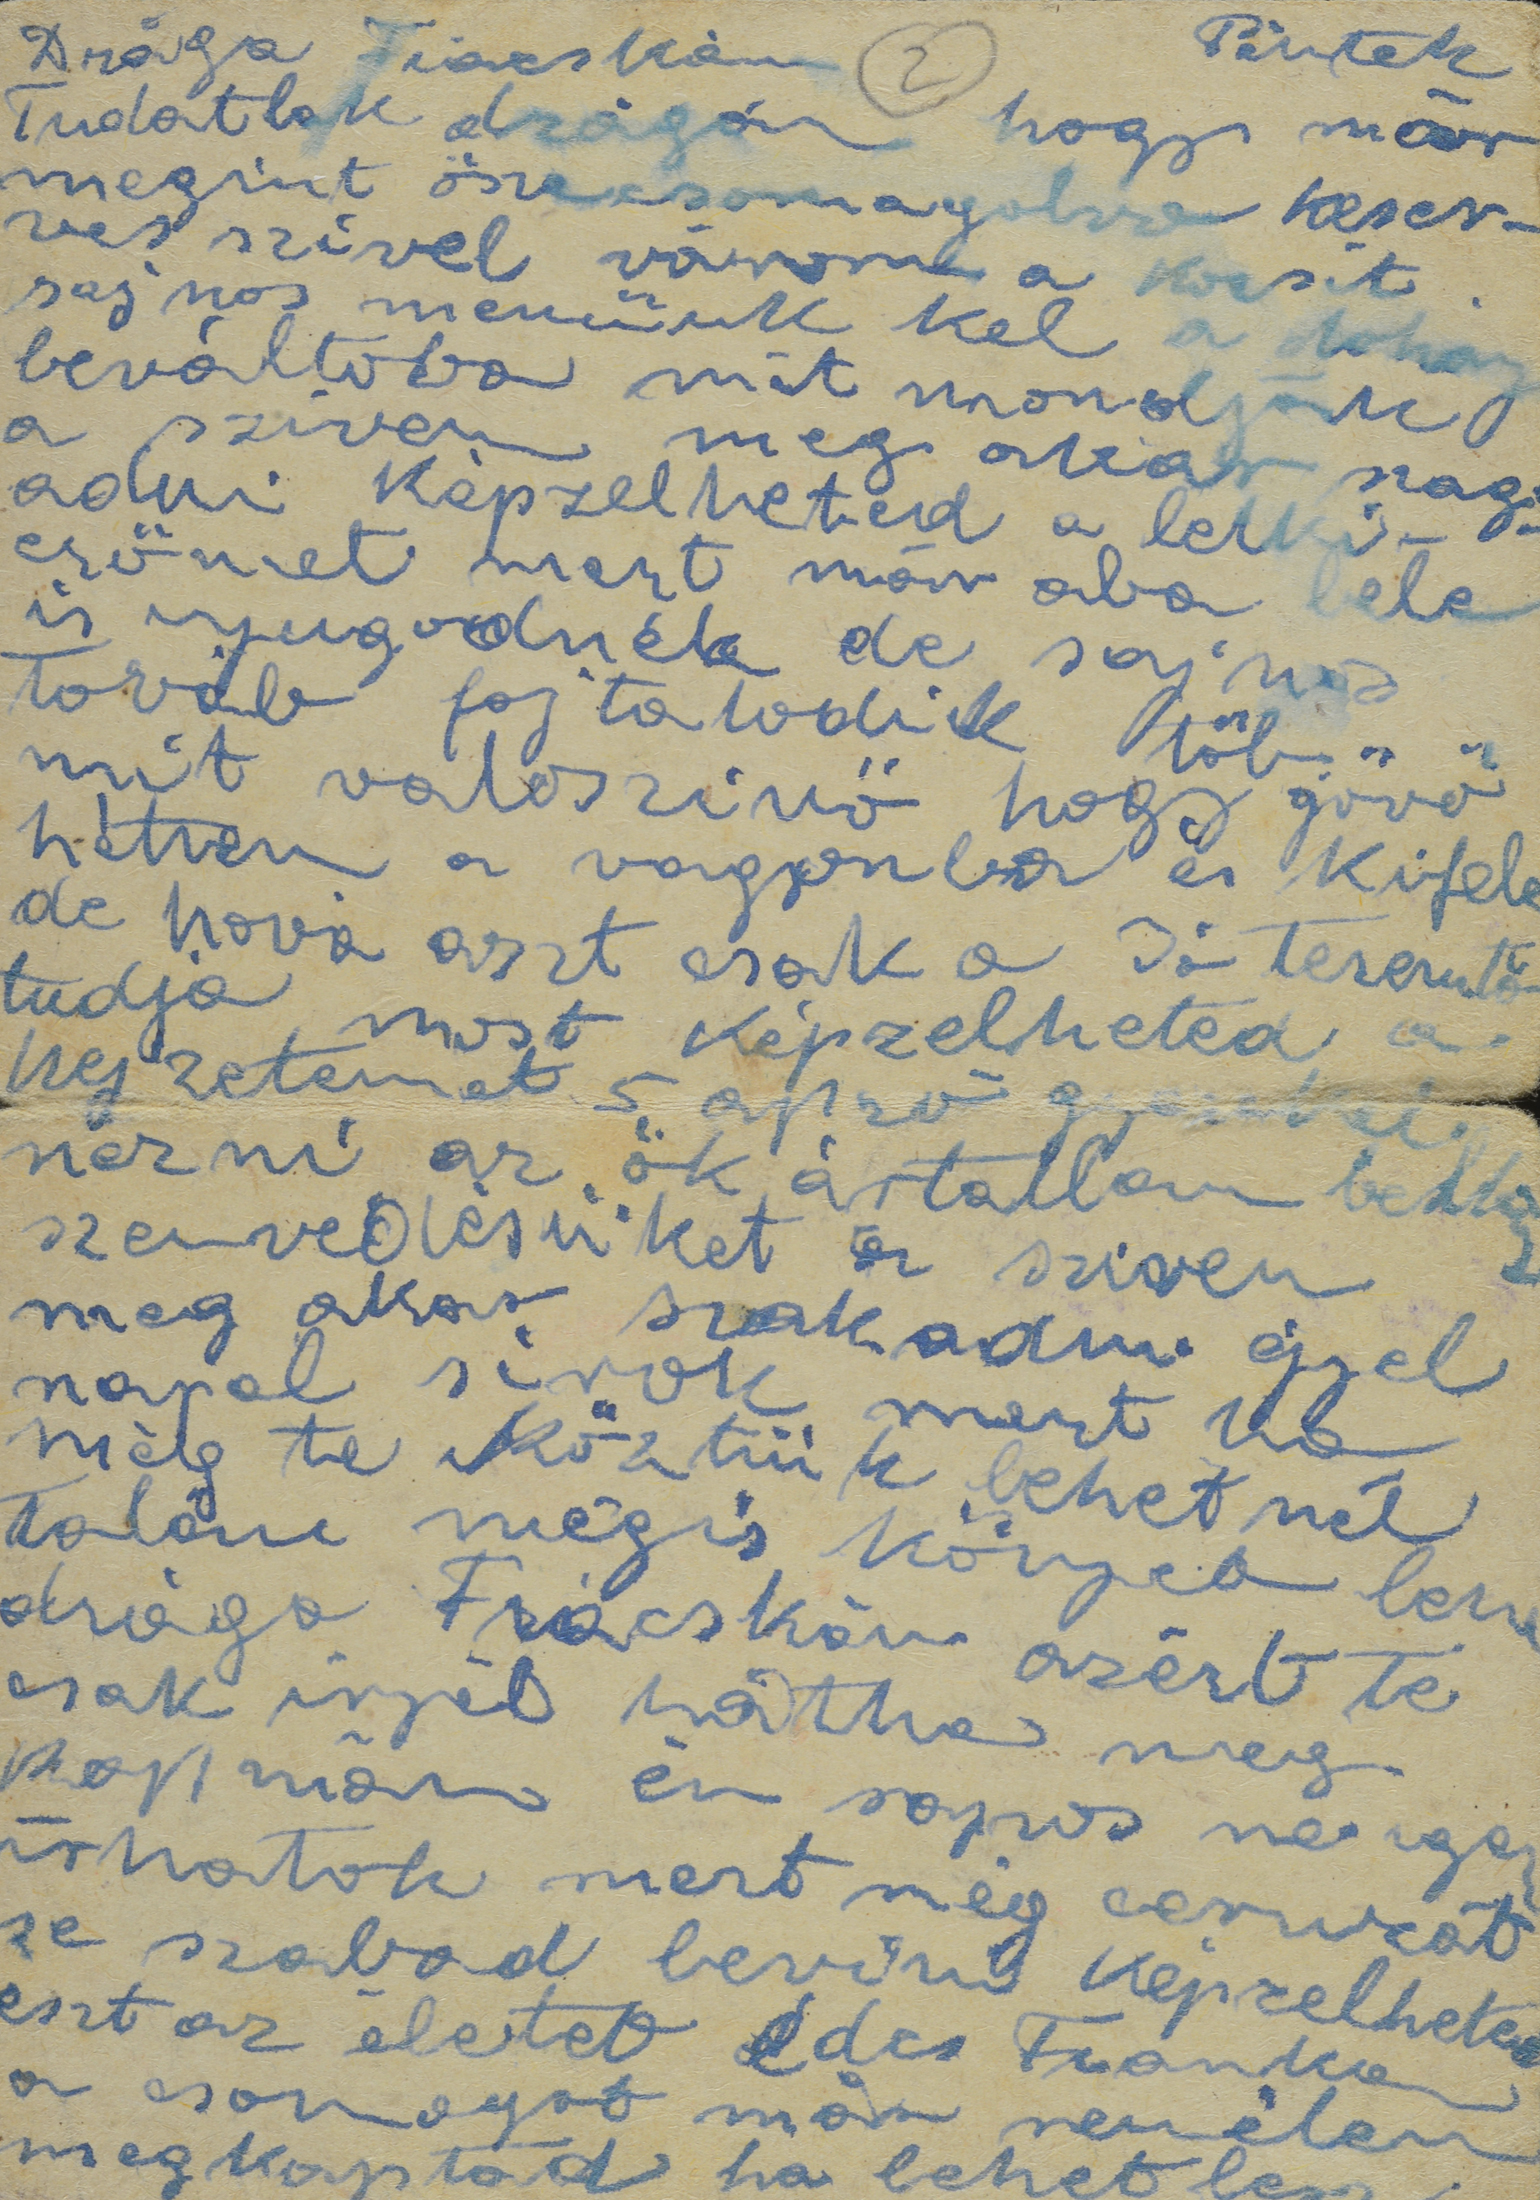 Drága Fiacskám 2 Péntek
Tudatlak drágám hogy már
megint öszecsomagolva keser-
ves szivel várom a kocsit.
sajnos menünk kel a dohány
beváltoba mit mondjak
a szivem meg akar szag-
adni Képzelheted a lelki-
erömet mert már aba bele
is nyugodnék de sajnos
továb fojtatodik töb
mit valoszinü hogy jövö
héten a vagonba és kifele
de hová aszt csak a Jó teremtö
tudja most képzelheted a
hejzetemet 5 apró
nézni az ök ártatlan
szenvedésüket a szivem
meg akar szakadni éjjel
napal sirok mert ha
még te köztük lehetnél
talám mégis könyeb len
drága Fiacskám azért te
csak irjál hátha meg
kapnám én sajnos ne
irhatok mert még ceruzát
se szabad bevini képzelheted
eszt az életet édes Fiamka
a csomagot már remélem
megkaptad ha lehet